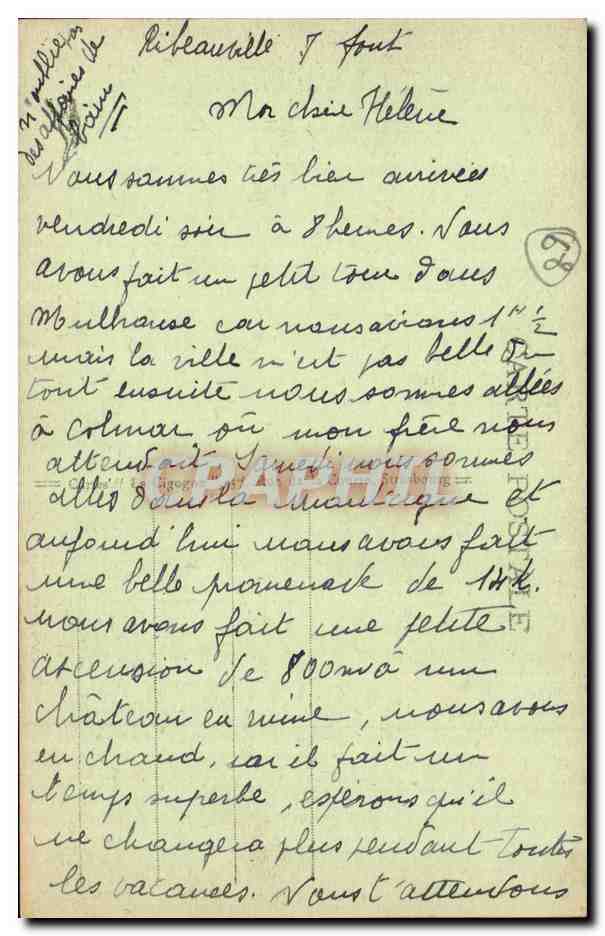 n'oublie pas
des affaires de
bain
Ribeauvillé 7 Aout
Ma chère Hélène
Nous sommes très bien arrivées
vendredi soir à 8 heures. Nous
avons fait un petit tour dans
Mulhouse car nous avions 1H 1/2
mais la ville n'est pas belle du
tout ensuite nous sommes allées
à Colmar où mon frère nous
attendait Samedi nous sommes
allés dans la montagne et
aujourd'hui nous avons fait
une belle promenade de 14 k.
nous avons fait une petite
ascension de 800m à un
château en ruine, nous avons
eu chaud, car il fait un
temps superbe, espérons qu'il
ne changera plus pendant toutes
les vacances. Nous t'attendons
29
CARTE POSTALE
CPAPHIL
Cartes "La Cigogne" Strasbourg